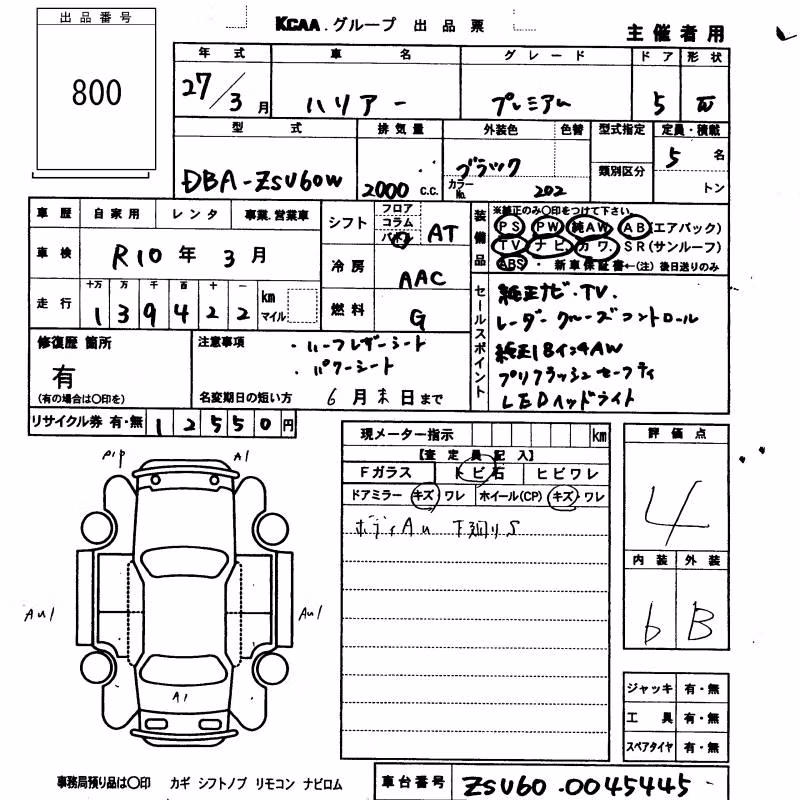 出品番号
800
KCAA.グループ 出品票
主催者用
年式 車名 グレード ドア 形状
27/3月 ハリアー プレミアム 5 W
型式 排気量 外装色 色替 型式指定 定員・積載
DBA-ZSU60W 2000 c.c. ブラック カラーNo. 202 類別区分 5 名
トン
車歴 自家用 レンタ 事業.営業車
シフト フロア コラム AT
装備品 ※純正のみ○印をつけて下さい。
PS PW 純AW AB(エアバック)
TV ナビ カワ SR(サンルーフ)
ABS ・ 新車保証書←(注) 後日送りのみ
車検 R10年 3月
冷房 AAC
走行 十万 万 千 百 十 一
139422 km マイル
燃料 G
セールスポイント
純正ナビ.TV.
レーダークルーズコントロール
純正18インチAW
プリクラッシュセーフティ
LEDヘッドライト
修復歴 箇所
有
(有の場合は○印を)
注意事項
・ハーフレザーシート
・パワーシート
名変期日の短い方 6月末日まで
リサイクル券 有・無 12550円
現メーター指示 km
【査定員記入】
Fガラス トビ石 ヒビワレ
ドアミラー キズ・ワレ ホイール(CP) キズ・ワレ
ボディAu 下廻りS
評価点
4
内装 外装
6 B
P1P A1
AU1 AU1
A1
ジャッキ 有・無
工具 有・無
スペアタイヤ 有・無
事務局預り品は○印 カギ シフトノブ リモコン ナビロム
車台番号 ZSU60.0045445